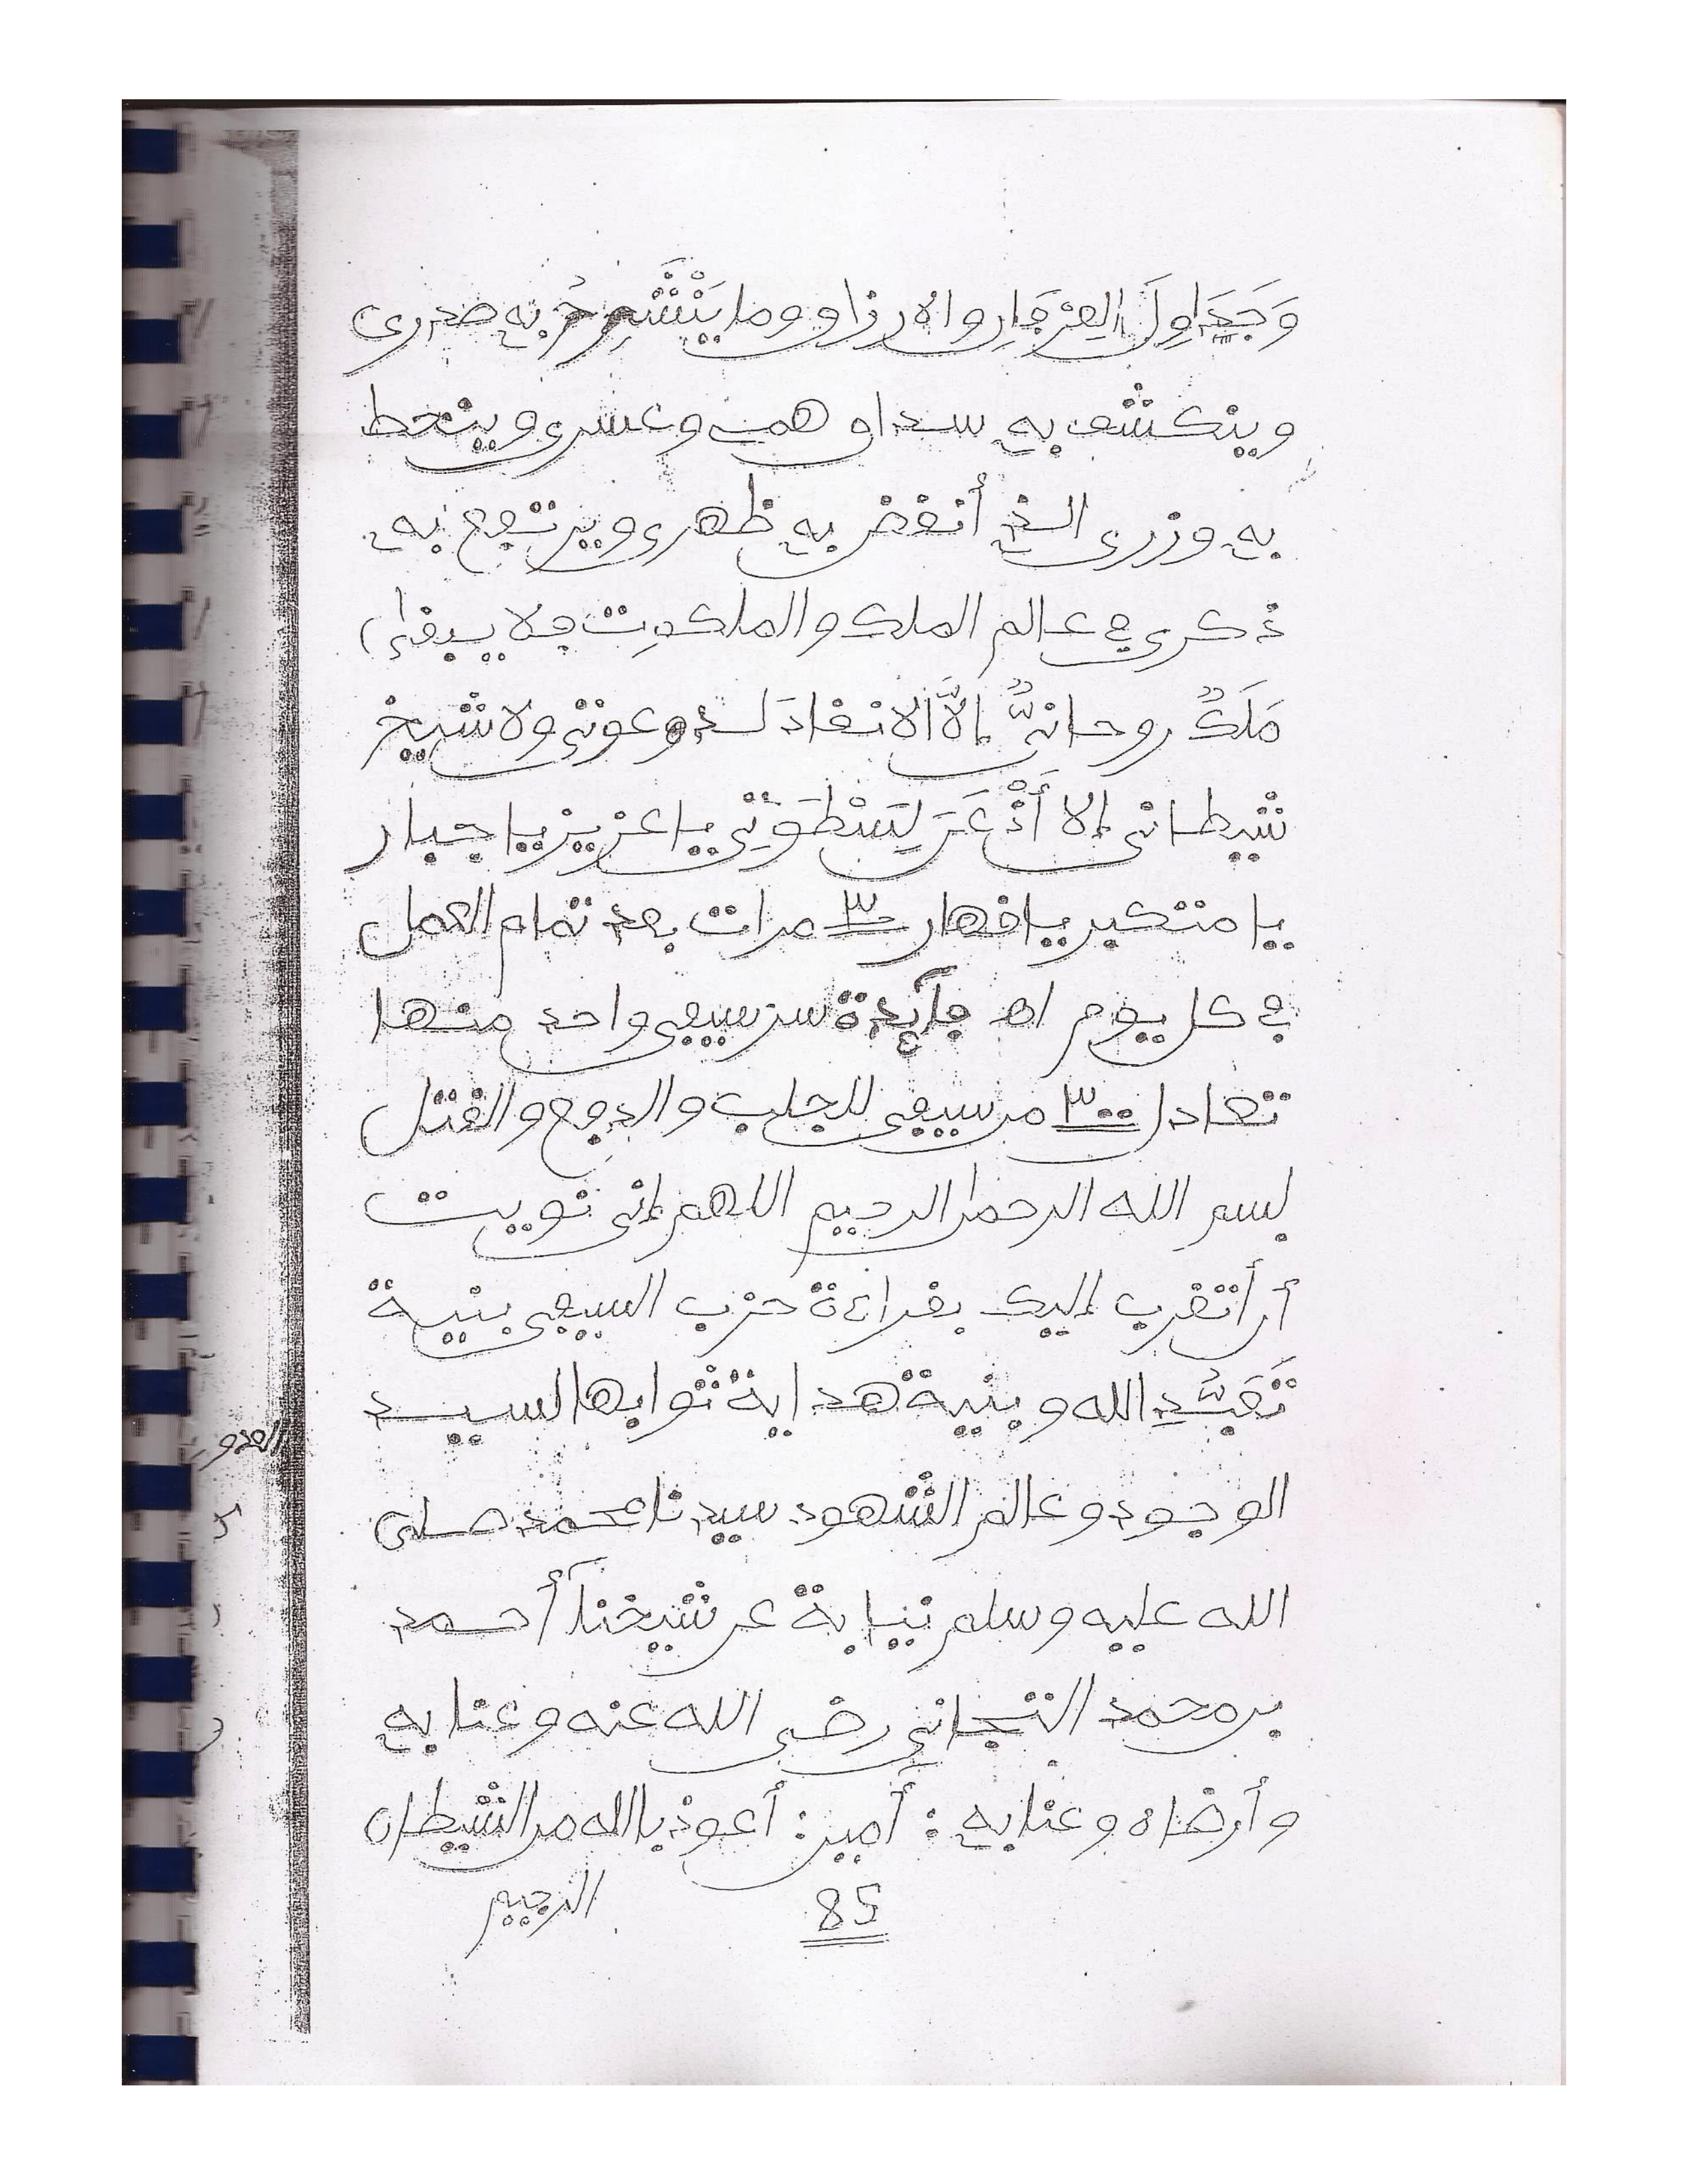 وَجَدَاوِلَ العِرْفَانِ والارزاق وما يَنْشَرِحُ به صدرى
وينكشف به سداف همى وعسرى وينحط
به وزرى الذى أنقض به ظهرى ويرتفع به
ذكرى فى عالم الملك والملكوت فلا يبقا
مَلَكٌ روحانىٌّ إلاّ الانقادَ لدعوتى ولا شيخ
شيطانى إلا أَذْعَنَ لِسَطْوَتِى يا عزيز يا جبار
يا متكبر يا قهار ٣ مرات بعد تمام العمل
فى كل يوم اه فآئدة سر سيفى واحد منها
تعادل ٣٠٠ من سيفى للجلب والدفع والقتل
بسم الله الرحمن الرحيم اللهم إنى نويت
أن أتقرب إليك بقراءة حزب السيفى بنية
تَعَبُّدِ الله وبنية هداية ثوابها السيد
الوجود وعالم الشهود سيدنا محمد صلى
الله عليه وسلم نيابة عن شيخنآ أحمد
بن محمد التجانى رضى الله عنه وعنا به
وأرضاه وعنا به : أمين : أعوذ بالله من الشيطان
الرجيم
85
العدو